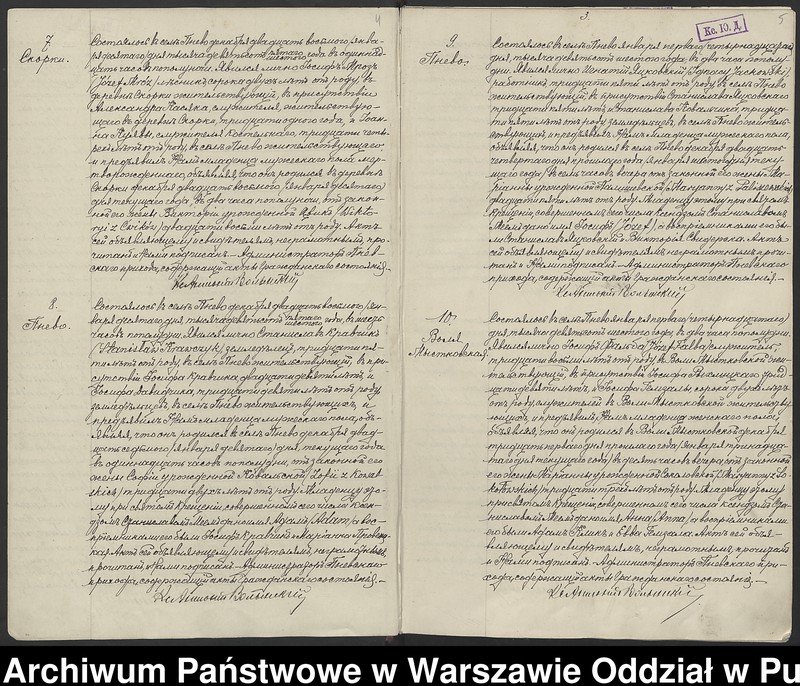 4
7.
Скорки.
Состоялось въ селѣ Гнево декабря двадцать восьмого, янва-
ря десятаго дня, тысяча девятьсотъ пятаго шестого года, въ одиннад-
цать часовъ пополудни. Явился лично Іосифъ Мрозъ
Józef Mróz, сорока двухъ лѣтъ отъ роду, въ
деревнѣ Скорки жительствующій, въ присутствіи
Александра Пасяка, служителя, жительствую-
щаго въ деревнѣ Скорки, тридцати одного года, и
служителя костельнаго, тридцати четы-
рехъ лѣтъ отъ роду, въ селѣ Гнево жительствующаго
и предъявилъ Намъ младенца мужескаго пола мер-
творожденнаго, объявляя, что онъ родился въ деревнѣ
Скорки декабря двадцать восьмого / января десятаго
дня текущаго года, въ два часа пополудни, отъ закон-
ной его жены Викторіи урожденной Цвикъ / Wikto-
ryi z Ćwików / двадцати восьми лѣтъ отъ роду. Актъ
сей объявляющему и свидѣтелямъ, неграмотнымъ, про-
читанъ и Нами подписанъ. — Администраторъ Гнев-
скаго прихода, содержащій акты гражданскаго состоянія. —
Кс.
8.
Гнево.
Состоялось въ селѣ Гнево декабря двадцать восьмого, ян-
варя десятаго дня, тысяча девятьсотъ пятаго шестого года, въ
часовъ пополудни. Явился лично Станиславъ Кравчикъ
(Stanisław Krawczyk), земледѣлецъ, тридцати пя-
ти лѣтъ отъ роду, въ селѣ Гнево жительствующій, въ при-
сутствіи Іосифа Кравчика, двадцати девяти лѣтъ и
Іосифа, тридцати девяти лѣтъ отъ роду
земледѣльцевъ, въ селѣ Гнево жительствующихъ, и
предъявилъ Намъ младенца мужескаго пола, объ-
являя, что онъ родился въ селѣ Гнево декабря двад-
цать седьмого / января девятаго / дня, текущаго года
въ одиннадцать часовъ пополудни, отъ законной его
жены Софіи урожденной Ковальской / Zofii z Kowal-
skich / тридцати двухъ лѣтъ отъ роду. Младенцу эро-
му при святомъ Крещеніи, совершенномъ сего числа Ксен-
дзомъ Станиславомъ дано имя Адамъ / Adam /, а вос-
пріемниками его были Іосифъ Кравчикъ и Маріанна
Актъ сей объявляющему и свидѣтелямъ, неграмотнымъ,
прочитанъ, и Нами подписанъ. — Администраторъ Гневскаго
прихода, содержащій акты гражданскаго состоянія. —
Кс.
3.
Кс. Ю. Д.
5
9.
Гнево.
Состоялось въ селѣ Гнево января перваго / четырнадцатаго
дня, тысяча девятьсотъ шестого года, въ два часа пополу-
дни. Явился лично Игнатій Яцковскій / Ignacy Jackowski /
работникъ, двадцати пяти лѣтъ отъ роду, въ селѣ Гнево
жительствующій, въ присутствіи Станислава Яцковскаго
тридцати пяти лѣтъ и Станислава Ковальчика, тридца-
ти пяти лѣтъ отъ роду, земледѣльцевъ, въ селѣ Гнево житель-
ствующихъ, и предъявилъ Намъ младенца мужескаго пола,
объявляя, что онъ родился въ селѣ Гнево декабря двадцать-
четвертаго дня прошлаго года / января шестого дня теку-
щаго года /, въ семь часовъ вечера, отъ законной его жены Ма-
ріанны урожденной
двадцати пяти лѣтъ отъ роду. Младенцу этому при святомъ
Крещеніи, совершенномъ сего числа Ксендзомъ Станиславомъ
дано имя Іосифъ / Józef /, а воспріемниками его бы-
ли Станиславъ Яцковскій и Викторія Свидерска. Актъ
сей объявляющему и свидѣтелямъ, неграмотнымъ, прочи-
танъ и Нами подписанъ. — Администраторъ Гневскаго
прихода, содержащій акты гражданскаго состоянія. —
Кс.
10.
Воля
Мыстковская.
Состоялось въ селѣ Гнево января перваго / четырнадцатаго /
дня, тысяча девятьсотъ шестого года, въ два часа пополудни.
Явился лично Іосифъ, служитель,
тридцати восьми лѣтъ отъ роду, въ Воли Мыстковской жи-
тельствующій, въ присутствіи Іосифа
цати девяти лѣтъ, и Іосифа, сорока двухъ лѣтъ
отъ роду, служителей въ Воли Мыстковской жительству-
ющихъ, и предъявилъ Намъ младенца женскаго пола,
объявляя, что онъ родился въ Воли Мыстковской декабря
тридцать перваго дня прошлаго года / января тринадца-
таго дня текущаго года /, въ десять часовъ вечера, отъ законной
его жены Маріанны урожденной Соколовской / Maryanny z So-
kołowskich / тридцати трехъ лѣтъ отъ роду. Младенцу этому
при святомъ Крещеніи, совершенномъ сего числа Ксендзомъ Ста-
ниславомъ дано имя Анна / Anna /, а воспріемниками
его были Адамъ и Евва. Актъ сей объя-
вляющему и свидѣтелямъ, неграмотнымъ, прочитанъ
и Нами подписанъ. — Администраторъ Гневскаго при-
хода, содержащій акты гражданскаго состоянія. —
Кс.
Archiwum Państwowe w Warszawie Oddział w Pu